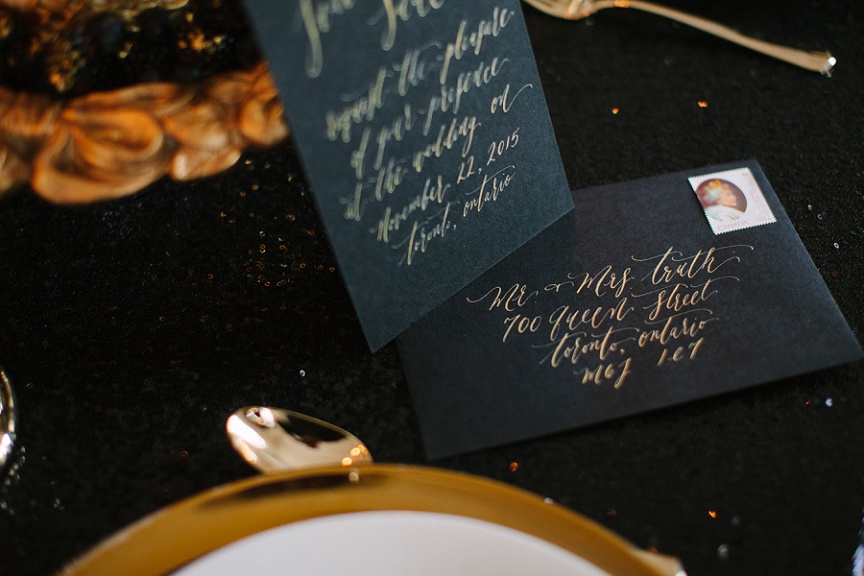 request the pleasure
of your presence
at the wedding on
November 22, 2015
toronto, ontario
Mr & Mrs truth
700 queen street
toronto, ontario
M6J 1E7